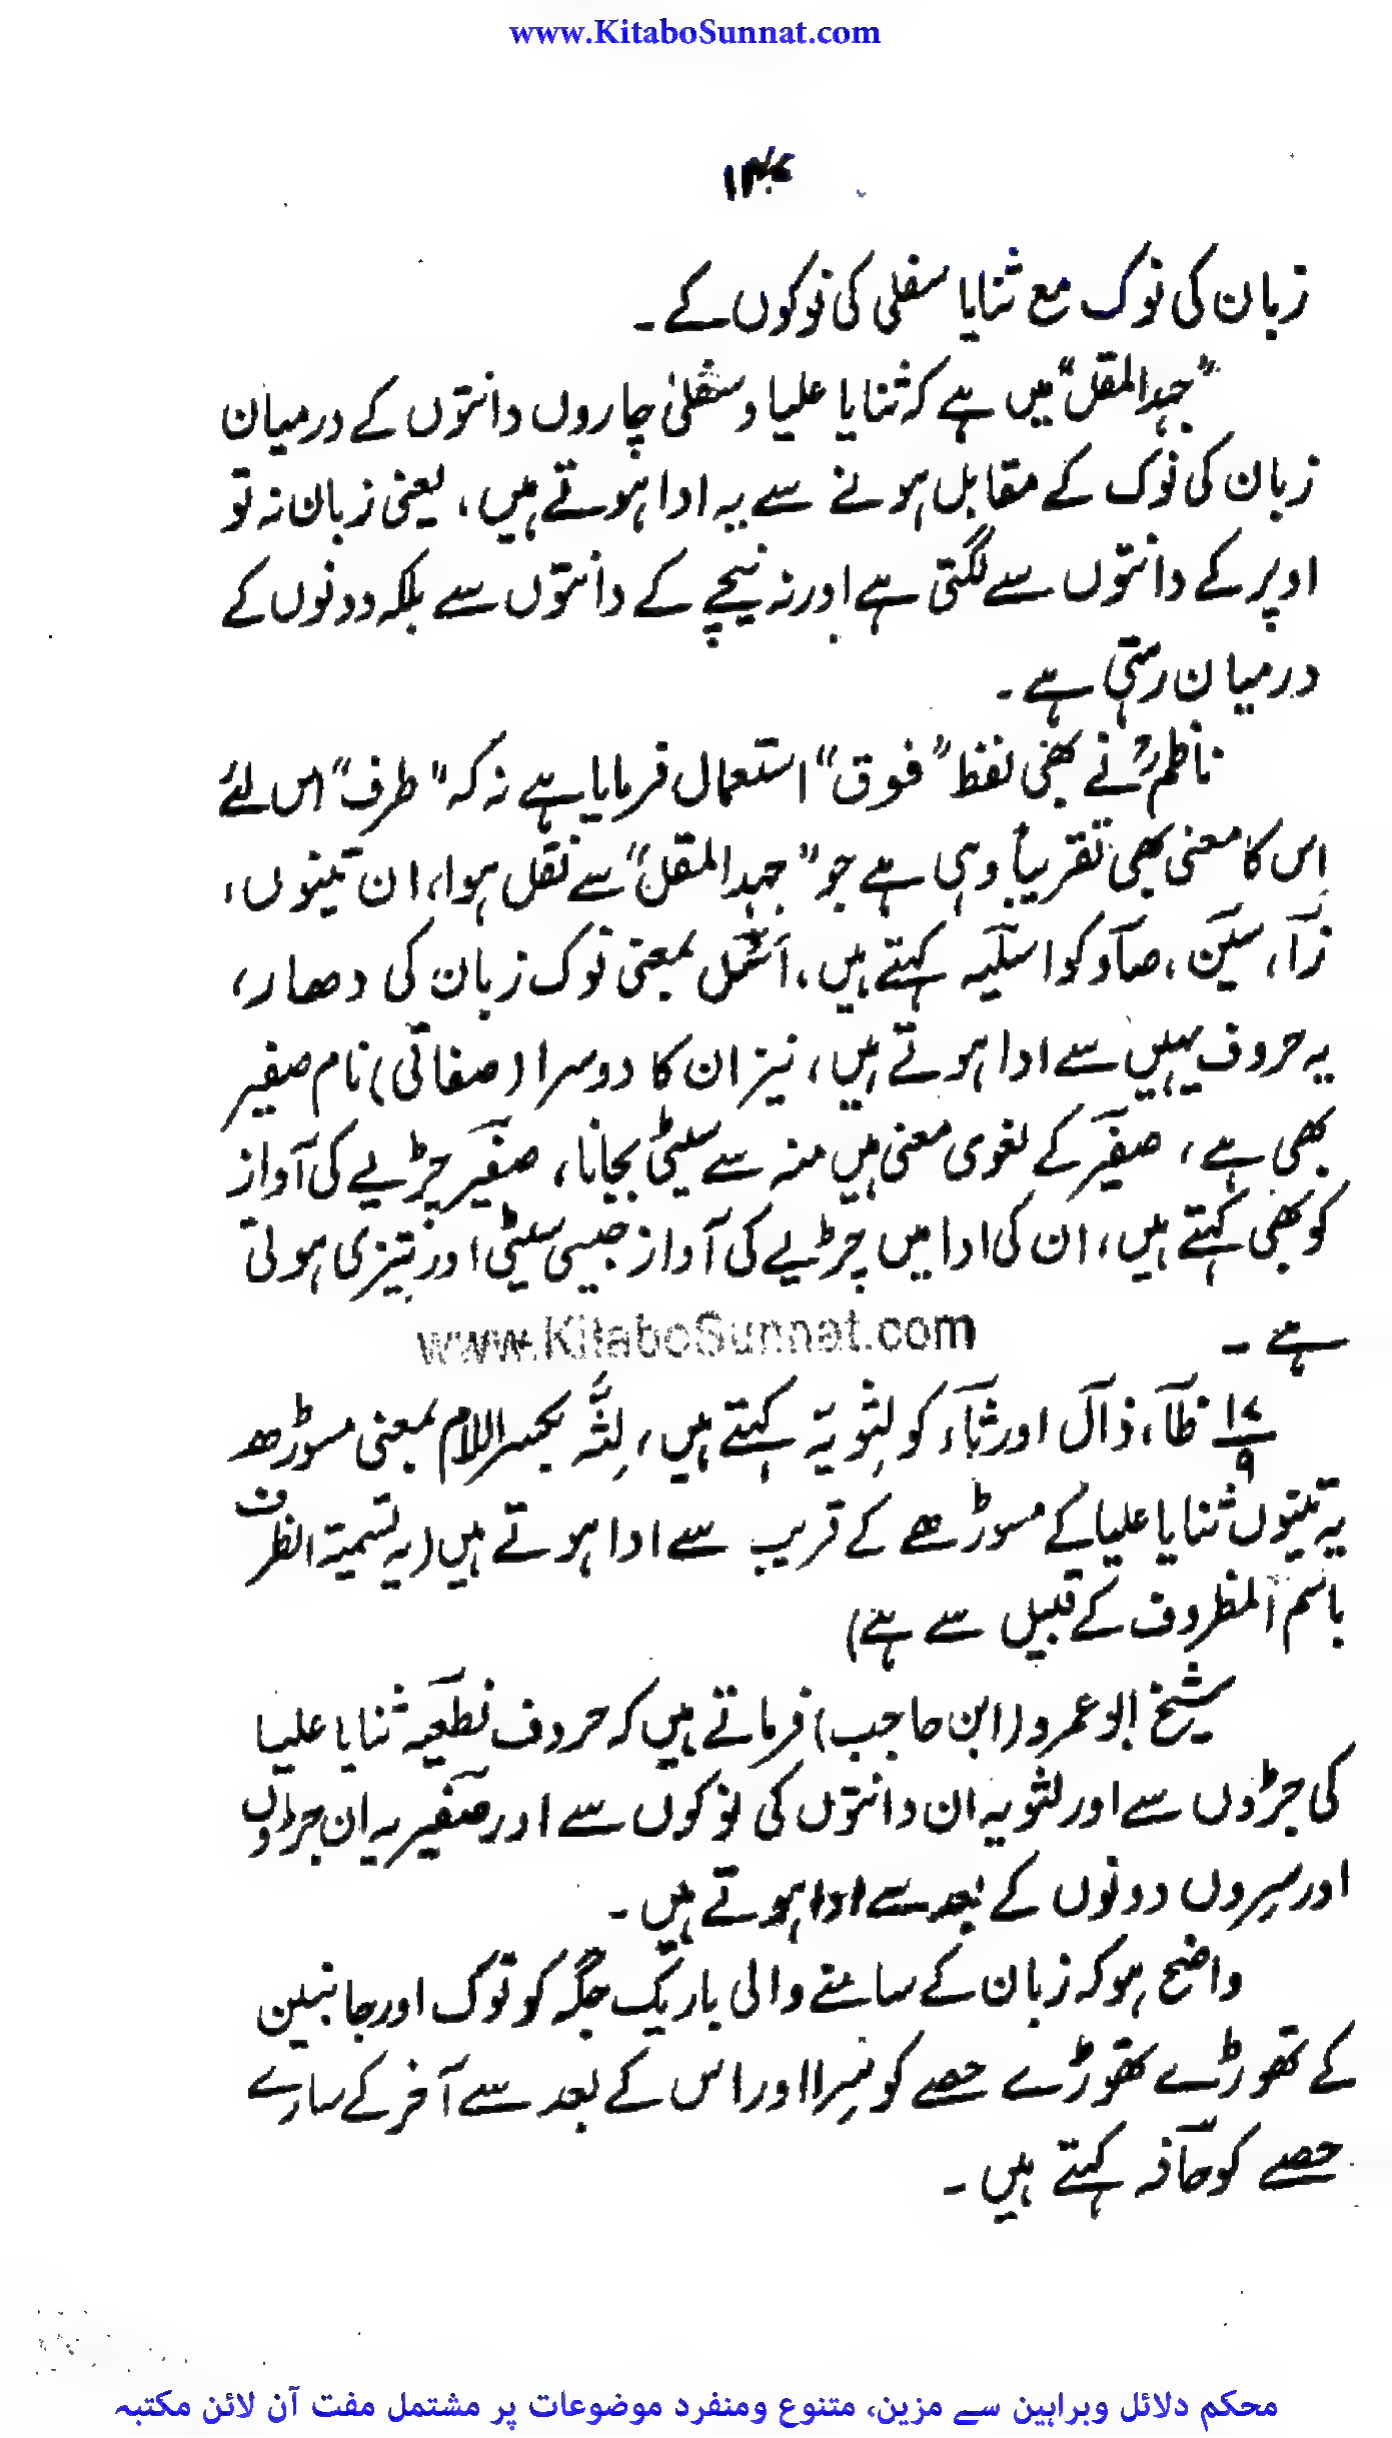 www.KitaboSunnat.com
زبان کی نوک مع ثنایا سفلی کی نوکوں کے ۔
”جہد المقل“ میں ہے کہ ثنایا علیا و سفلیٰ چاروں دانتوں کے درمیان
زبان کی نوک کے مقابل ہونے سے یہ ادا ہوتے ہیں، یعنی زبان نہ تو
اوپر کے دانتوں سے لگتی ہے اور نہ نیچے کے دانتوں سے بلکہ دونوں کے
درمیان رہتی ہے ۔
ناظمؒ نے بھی لفظ ”فوق“ استعمال فرمایا ہے نہ کہ ”طرف“ اس لئے
اِس کا معنی بھی تقریباً وہی ہے جو ”جہد المقل“ سے نقل ہوا، ان تینوں،
زآ، سیٓن، صآد کو اسلیہ کہتے ہیں، اَسَل بمعنی نوک زبان کی دھار،
یہ حروف یہیں سے ادا ہوتے ہیں، نیز ان کا دوسرا (صفاتی) نام صفیر
بھی ہے، صفیر کے لغوی معنی ہیں منہ سے سیٹی بجانا، صفیر چڑیے کی آواز
کو بھی کہتے ہیں، ان کی ادا میں چڑیے کی آواز جیسی سیٹی اور تیزی ہوتی
ہے ۔
www.KitaboSunnat.com
۱۷/۹ ظآء، ذآل اور ثآء کو لِثویہ کہتے ہیں، لِثَہ بکسر اللام بمعنی مسوڑھ
یہ تینوں ثنایا علیا کے مسوڑھے کے قریب سے ادا ہوتے ہیں (یہ تسمیۃ الظرف
باسم المظروف کے قبیل سے ہے)
شیخ ابو عمرو (ابن حاجب) فرماتے ہیں کہ حروف نطعیہ ثنایا علیا
کی جڑوں سے اور لثویہ ان دانتوں کی نوکوں سے اور صفیریہ ان جڑوں
اور سِروں دونوں کے بعد سے ادا ہوتے ہیں ۔
واضح ہو کہ زبان کے سامنے والی باریک جگہ کو نوک اور جانبین
کے تھوڑے تھوڑے حصے کو سِرا اور اس کے بعد سے آخر کے سارے
حصے کو حآفہ کہتے ہیں ۔
محکم دلائل وبراہین سے مزین، متنوع ومنفرد موضوعات پر مشتمل مفت آن لائن مکتبہ